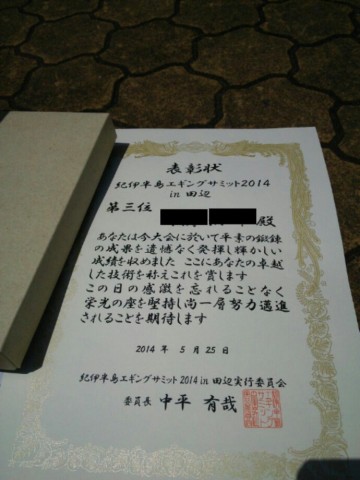 表彰状
紀伊半島エギングサミット2014
in 田辺
第三位
殿
あなたは今大会に於いて平素の鍛錬
の成果を遺憾なく発揮し輝かしい
成績を収めました ここにあなたの卓越
した技術を称えこれを賞します
この日の感激を忘れることなく
栄光の座を堅持し尚一層努力邁進
されることを期待します
2014 年 5 月 25 日
紀伊半島エギングサミット 2014 in 田辺実行委員会
委員長 中平 有哉